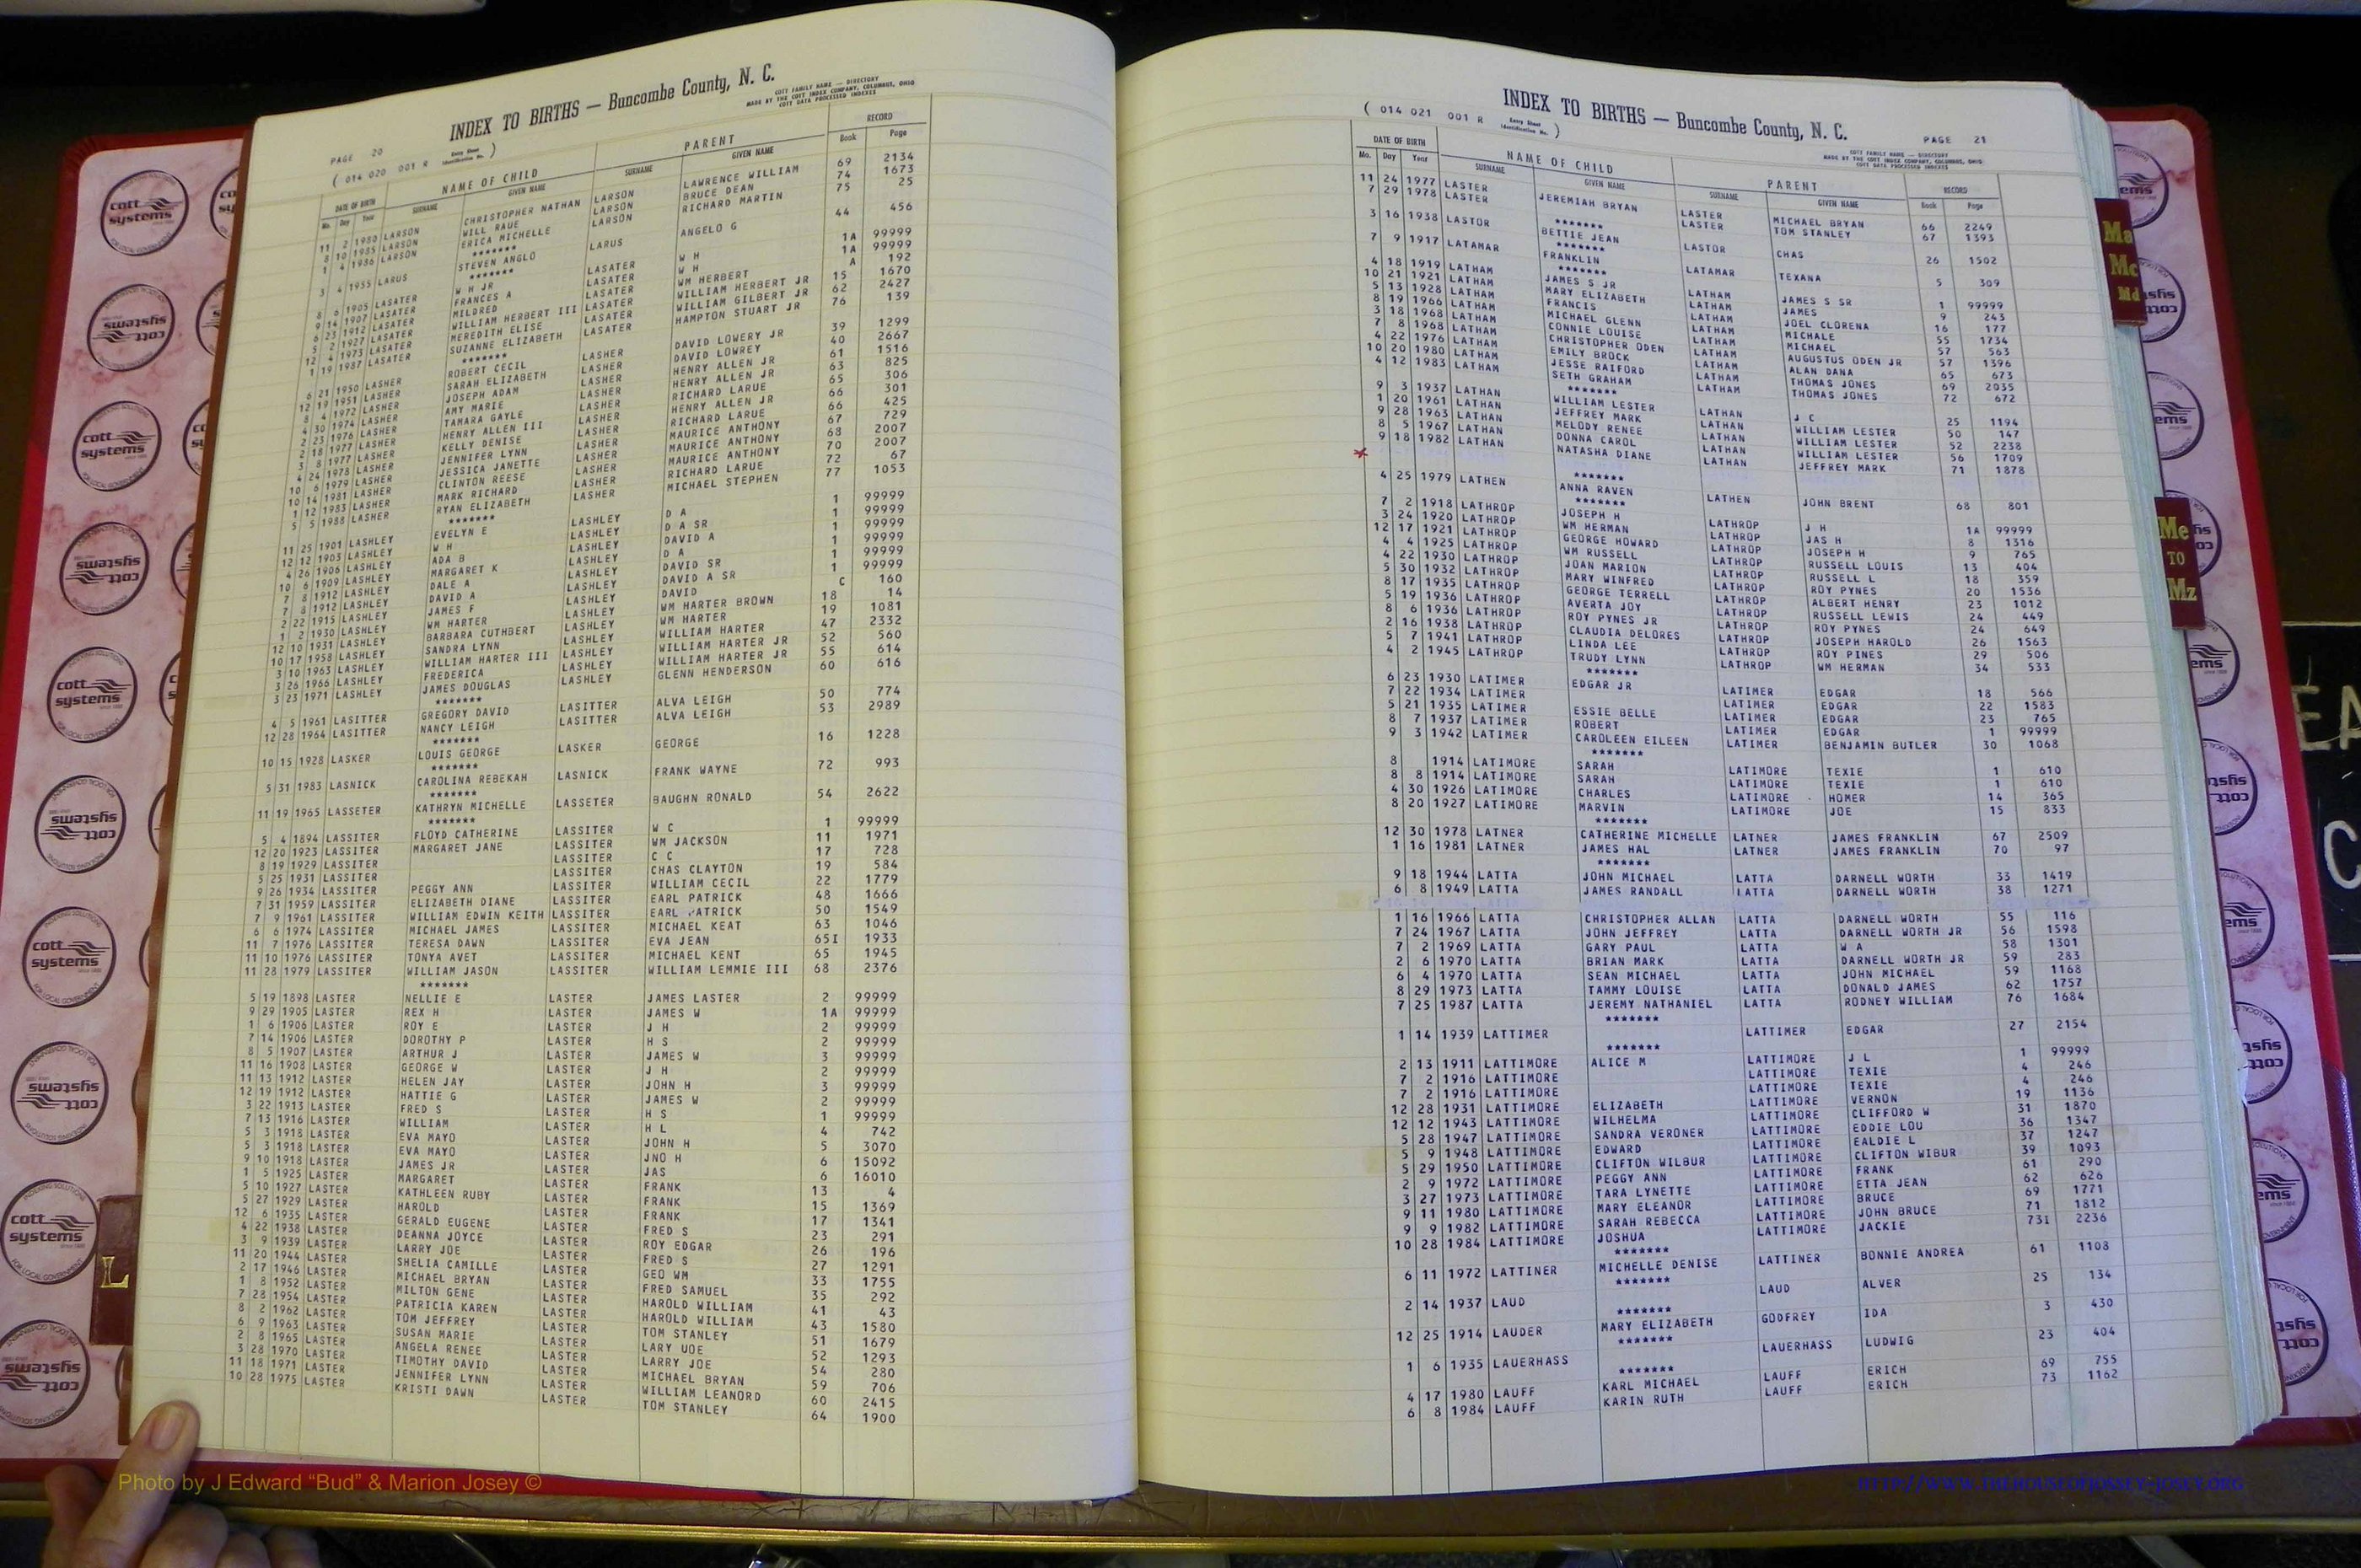 INDEX TO BIRTHS — Buncombe County, N. C.
COTT FAMILY NAME — DIRECTORY
MADE BY THE COTT INDEX COMPANY, COLUMBUS, OHIO
COTT DATA PROCESSED INDEXES
PAGE 20
( 014 020 001 R Entry Sheet Identification No. )
DATE OF BIRTH NAME OF CHILD PARENT RECORD
Mo. Day Year SURNAME GIVEN NAME SURNAME GIVEN NAME Book Page
11 2 1980 LARSON CHRISTOPHER NATHAN LARSON LAWRENCE WILLIAM 69 2134
8 10 1985 LARSON WILL RAUE LARSON BRUCE DEAN 74 1673
1 4 1986 LARSON ERICA MICHELLE LARSON RICHARD MARTIN 75 25
*******
3 4 1955 LARUS STEVEN ANGLO LARUS ANGELO G 44 456
*******
8 6 1905 LASATER W H JR LASATER W H 1A 99999
9 14 1907 LASATER FRANCES A LASATER W H 1A 99999
6 23 1912 LASATER MILDRED LASATER WM HERBERT A 192
5 2 1927 LASATER WILLIAM HERBERT III LASATER WILLIAM HERBERT JR 15 1670
12 4 1973 LASATER MEREDITH ELISE LASATER WILLIAM GILBERT JR 62 2427
1 19 1987 LASATER SUZANNE ELIZABETH LASATER HAMPTON STUART JR 76 139
*******
6 21 1950 LASHER ROBERT CECIL LASHER DAVID LOWERY JR 39 1299
12 19 1951 LASHER SARAH ELIZABETH LASHER DAVID LOWREY 40 2667
8 4 1972 LASHER JOSEPH ADAM LASHER HENRY ALLEN JR 61 1516
4 30 1974 LASHER AMY MARIE LASHER HENRY ALLEN JR 63 825
2 23 1976 LASHER TAMARA GAYLE LASHER RICHARD LARUE 65 306
2 18 1977 LASHER HENRY ALLEN III LASHER HENRY ALLEN JR 66 301
3 8 1977 LASHER KELLY DENISE LASHER RICHARD LARUE 66 425
4 24 1978 LASHER JENNIFER LYNN LASHER MAURICE ANTHONY 67 729
10 6 1979 LASHER JESSICA JANETTE LASHER MAURICE ANTHONY 68 2007
10 14 1981 LASHER CLINTON REESE LASHER MAURICE ANTHONY 70 2007
1 12 1983 LASHER MARK RICHARD LASHER RICHARD LARUE 72 67
5 5 1988 LASHER RYAN ELIZABETH LASHER MICHAEL STEPHEN 77 1053
*******
11 25 1901 LASHLEY EVELYN E LASHLEY D A 1 99999
12 12 1903 LASHLEY W H LASHLEY D A SR 1 99999
4 26 1906 LASHLEY ADA B LASHLEY DAVID A 1 99999
10 6 1909 LASHLEY MARGARET K LASHLEY D A 1 99999
7 8 1912 LASHLEY DALE A LASHLEY DAVID SR 1 99999
7 8 1912 LASHLEY DAVID A LASHLEY DAVID A SR 1 99999
2 22 1915 LASHLEY JAMES F LASHLEY DAVID C 160
1 2 1930 LASHLEY WM HARTER LASHLEY WM HARTER BROWN 18 14
12 10 1931 LASHLEY BARBARA CUTHBERT LASHLEY WM HARTER 19 1081
10 17 1958 LASHLEY SANDRA LYNN LASHLEY WILLIAM HARTER 47 2332
3 10 1963 LASHLEY WILLIAM HARTER III LASHLEY WILLIAM HARTER JR 52 560
3 26 1966 LASHLEY FREDERICA LASHLEY WILLIAM HARTER JR 55 614
3 23 1971 LASHLEY JAMES DOUGLAS LASHLEY GLENN HENDERSON 60 616
*******
4 5 1961 LASITTER GREGORY DAVID LASITTER ALVA LEIGH 50 774
12 28 1964 LASITTER NANCY LEIGH LASITTER ALVA LEIGH 53 2989
*******
10 15 1928 LASKER LOUIS GEORGE LASKER GEORGE 16 1228
*******
5 31 1983 LASNICK CAROLINA REBEKAH LASNICK FRANK WAYNE 72 993
*******
11 19 1965 LASSETER KATHRYN MICHELLE LASSETER BAUGHN RONALD 54 2622
*******
5 4 1894 LASSITER FLOYD CATHERINE LASSITER W C 1 99999
12 20 1923 LASSITER MARGARET JANE LASSITER WM JACKSON 11 1971
8 19 1929 LASSITER LASSITER C C 17 728
5 25 1931 LASSITER LASSITER CHAS CLAYTON 19 584
9 26 1934 LASSITER PEGGY ANN LASSITER WILLIAM CECIL 22 1779
7 31 1959 LASSITER ELIZABETH DIANE LASSITER EARL PATRICK 48 1666
7 9 1961 LASSITER WILLIAM EDWIN KEITH LASSITER EARL PATRICK 50 1549
6 6 1974 LASSITER MICHAEL JAMES LASSITER MICHAEL KEAT 63 1046
11 7 1976 LASSITER TERESA DAWN LASSITER EVA JEAN 65I 1933
11 10 1976 LASSITER TONYA AVET LASSITER MICHAEL KENT 65 1945
11 28 1979 LASSITER WILLIAM JASON LASSITER WILLIAM LEMMIE III 68 2376
*******
5 19 1898 LASTER NELLIE E LASTER JAMES LASTER 2 99999
9 29 1905 LASTER REX H LASTER JAMES W 1A 99999
1 6 1906 LASTER ROY E LASTER J H 2 99999
7 14 1906 LASTER DOROTHY P LASTER H S 2 99999
8 5 1907 LASTER ARTHUR J LASTER JAMES W 3 99999
11 16 1908 LASTER GEORGE W LASTER J H 2 99999
11 13 1912 LASTER HELEN JAY LASTER JOHN H 3 99999
12 19 1912 LASTER HATTIE G LASTER JAMES W 2 99999
3 22 1913 LASTER FRED S LASTER H S 1 99999
7 13 1916 LASTER WILLIAM LASTER H L 4 742
5 3 1918 LASTER EVA MAYO LASTER JOHN H 5 3070
5 3 1918 LASTER EVA MAYO LASTER JNO H 6 15092
9 10 1918 LASTER JAMES JR LASTER JAS 6 16010
1 5 1925 LASTER MARGARET LASTER FRANK 13 4
5 10 1927 LASTER KATHLEEN RUBY LASTER FRANK 15 1369
5 27 1929 LASTER HAROLD LASTER FRANK 17 1341
12 6 1935 LASTER GERALD EUGENE LASTER FRED S 23 291
4 22 1938 LASTER DEANNA JOYCE LASTER ROY EDGAR 26 196
3 9 1939 LASTER LARRY JOE LASTER FRED S 27 1291
11 20 1944 LASTER SHELIA CAMILLE LASTER GEO WM 33 1755
2 17 1946 LASTER MICHAEL BRYAN LASTER FRED SAMUEL 35 292
1 8 1952 LASTER MILTON GENE LASTER HAROLD WILLIAM 41 43
7 28 1954 LASTER PATRICIA KAREN LASTER HAROLD WILLIAM 43 1580
8 2 1962 LASTER TOM JEFFREY LASTER TOM STANLEY 51 1679
6 9 1963 LASTER SUSAN MARIE LASTER LARY UOE 52 1293
2 8 1965 LASTER ANGELA RENEE LASTER LARRY JOE 54 280
3 28 1970 LASTER TIMOTHY DAVID LASTER MICHAEL BRYAN 59 706
11 18 1971 LASTER JENNIFER LYNN LASTER WILLIAM LEANORD 60 2415
10 28 1975 LASTER KRISTI DAWN LASTER TOM STANLEY 64 1900
INDEX TO BIRTHS — Buncombe County, N. C.
( 014 021 001 R Entry Sheet Identification No. )
PAGE 21
COTT FAMILY NAME — DIRECTORY
MADE BY THE COTT INDEX COMPANY, COLUMBUS, OHIO
COTT DATA PROCESSED INDEXES
DATE OF BIRTH NAME OF CHILD PARENT RECORD
Mo. Day Year SURNAME GIVEN NAME SURNAME GIVEN NAME Book Page
11 24 1977 LASTER JEREMIAH BRYAN LASTER MICHAEL BRYAN 66 2249
7 29 1978 LASTER LASTER TOM STANLEY 67 1393
*******
3 16 1938 LASTOR BETTIE JEAN LASTOR CHAS 26 1502
*******
7 9 1917 LATAMAR FRANKLIN LATAMAR TEXANA 5 309
*******
4 18 1919 LATHAM JAMES S JR LATHAM JAMES S SR 1 99999
10 21 1921 LATHAM MARY ELIZABETH LATHAM JAMES 9 243
5 13 1928 LATHAM FRANCIS LATHAM JOEL CLORENA 16 177
8 19 1966 LATHAM MICHAEL GLENN LATHAM MICHALE 55 1734
3 18 1968 LATHAM CONNIE LOUISE LATHAM MICHAEL 57 563
7 8 1968 LATHAM CHRISTOPHER ODEN LATHAM AUGUSTUS ODEN JR 57 1396
4 22 1976 LATHAM EMILY BROCK LATHAM ALAN DANA 65 673
10 20 1980 LATHAM JESSE RAIFORD LATHAM THOMAS JONES 69 2035
4 12 1983 LATHAM SETH GRAHAM LATHAM THOMAS JONES 72 672
*******
9 3 1937 LATHAN WILLIAM LESTER LATHAN J C 25 1194
1 20 1961 LATHAN JEFFREY MARK LATHAN WILLIAM LESTER 50 147
9 28 1963 LATHAN MELODY RENEE LATHAN WILLIAM LESTER 52 2238
8 5 1967 LATHAN DONNA CAROL LATHAN WILLIAM LESTER 56 1709
9 18 1982 LATHAN NATASHA DIANE LATHAN JEFFREY MARK 71 1878
*******
4 25 1979 LATHEN ANNA RAVEN LATHEN JOHN BRENT 68 801
*******
7 2 1918 LATHROP JOSEPH H LATHROP J H 1A 99999
3 24 1920 LATHROP WM HERMAN LATHROP JAS H 8 1316
12 17 1921 LATHROP GEORGE HOWARD LATHROP JOSEPH H 9 765
4 4 1925 LATHROP WM RUSSELL LATHROP RUSSELL LOUIS 13 404
4 22 1930 LATHROP JOAN MARION LATHROP RUSSELL L 18 359
5 30 1932 LATHROP MARY WINFRED LATHROP ROY PYNES 20 1536
8 17 1935 LATHROP GEORGE TERRELL LATHROP ALBERT HENRY 23 1012
5 19 1936 LATHROP AVERTA JOY LATHROP RUSSELL LEWIS 24 449
8 6 1936 LATHROP ROY PYNES JR LATHROP ROY PYNES 24 649
2 16 1938 LATHROP CLAUDIA DELORES LATHROP JOSEPH HAROLD 26 1563
5 7 1941 LATHROP LINDA LEE LATHROP ROY PINES 29 506
4 2 1945 LATHROP TRUDY LYNN LATHROP WM HERMAN 34 533
*******
6 23 1930 LATIMER EDGAR JR LATIMER EDGAR 18 566
7 22 1934 LATIMER LATIMER EDGAR 22 1583
5 21 1935 LATIMER ESSIE BELLE LATIMER EDGAR 23 765
8 7 1937 LATIMER ROBERT LATIMER EDGAR 1 99999
9 3 1942 LATIMER CAROLEEN EILEEN LATIMER BENJAMIN BUTLER 30 1068
*******
8 1914 LATIMORE SARAH LATIMORE TEXIE 1 610
8 8 1914 LATIMORE SARAH LATIMORE TEXIE 1 610
4 30 1926 LATIMORE CHARLES LATIMORE HOMER 14 365
8 20 1927 LATIMORE MARVIN LATIMORE JOE 15 833
*******
12 30 1978 LATNER CATHERINE MICHELLE LATNER JAMES FRANKLIN 67 2509
1 16 1981 LATNER JAMES HAL LATNER JAMES FRANKLIN 70 97
*******
9 18 1944 LATTA JOHN MICHAEL LATTA DARNELL WORTH 33 1419
6 8 1949 LATTA JAMES RANDALL LATTA DARNELL WORTH 38 1271
1 16 1966 LATTA CHRISTOPHER ALLAN LATTA DARNELL WORTH 55 116
7 24 1967 LATTA JOHN JEFFREY LATTA DARNELL WORTH JR 56 1598
7 2 1969 LATTA GARY PAUL LATTA W A 58 1301
2 6 1970 LATTA BRIAN MARK LATTA DARNELL WORTH JR 59 283
6 4 1970 LATTA SEAN MICHAEL LATTA JOHN MICHAEL 59 1168
8 29 1973 LATTA TAMMY LOUISE LATTA DONALD JAMES 62 1757
7 25 1987 LATTA JEREMY NATHANIEL LATTA RODNEY WILLIAM 76 1684
*******
1 14 1939 LATTIMER LATTIMER EDGAR 27 2154
*******
2 13 1911 LATTIMORE ALICE M LATTIMORE J L 1 99999
7 2 1916 LATTIMORE LATTIMORE TEXIE 4 246
7 2 1916 LATTIMORE LATTIMORE TEXIE 4 246
12 28 1931 LATTIMORE ELIZABETH LATTIMORE VERNON 19 1136
12 12 1943 LATTIMORE WILHELMA LATTIMORE CLIFFORD W 31 1870
5 28 1947 LATTIMORE SANDRA VERONER LATTIMORE EDDIE LOU 36 1347
5 9 1948 LATTIMORE EDWARD LATTIMORE EALDIE L 37 1247
5 29 1950 LATTIMORE CLIFTON WILBUR LATTIMORE CLIFTON WIBUR 39 1093
2 9 1972 LATTIMORE PEGGY ANN LATTIMORE FRANK 61 290
3 27 1973 LATTIMORE TARA LYNETTE LATTIMORE ETTA JEAN 62 626
9 11 1980 LATTIMORE MARY ELEANOR LATTIMORE BRUCE 69 1771
9 9 1982 LATTIMORE SARAH REBECCA LATTIMORE JOHN BRUCE 71 1812
10 28 1984 LATTIMORE JOSHUA LATTIMORE JACKIE 73I 2236
*******
6 11 1972 LATTINER MICHELLE DENISE LATTINER BONNIE ANDREA 61 1108
*******
2 14 1937 LAUD LAUD ALVER 25 134
*******
12 25 1914 LAUDER MARY ELIZABETH GODFREY IDA 3 430
*******
1 6 1935 LAUERHASS LAUERHASS LUDWIG 23 404
*******
4 17 1980 LAUFF KARL MICHAEL LAUFF ERICH 69 755
6 8 1984 LAUFF KARIN RUTH LAUFF ERICH 73 1162
Ma
Mc
Md
Me
TO
Mz
L
cott systems
Photo by J Edward “Bud” & Marion Josey ©
HTTP://WWW.THEHOUSEOFJOSSEY-JOSEY.ORG